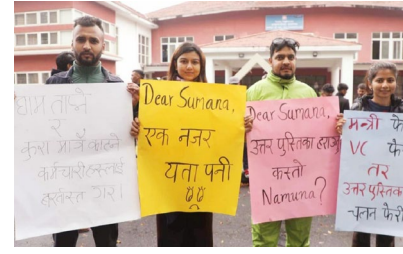 घाम ताप्ने
र
कुरा मात्रै काट्ने
कर्मचारीहरुलाई
बर्खास्त गर।
Dear Sumana,
एक नजर
यता पनी
Dear Sumana,
उत्तर पुस्तिका हराउ
कस्तो
Namuna?
मन्त्री फे
VC फे
तर
उत्तर पुस्तिक
चलन फेरि